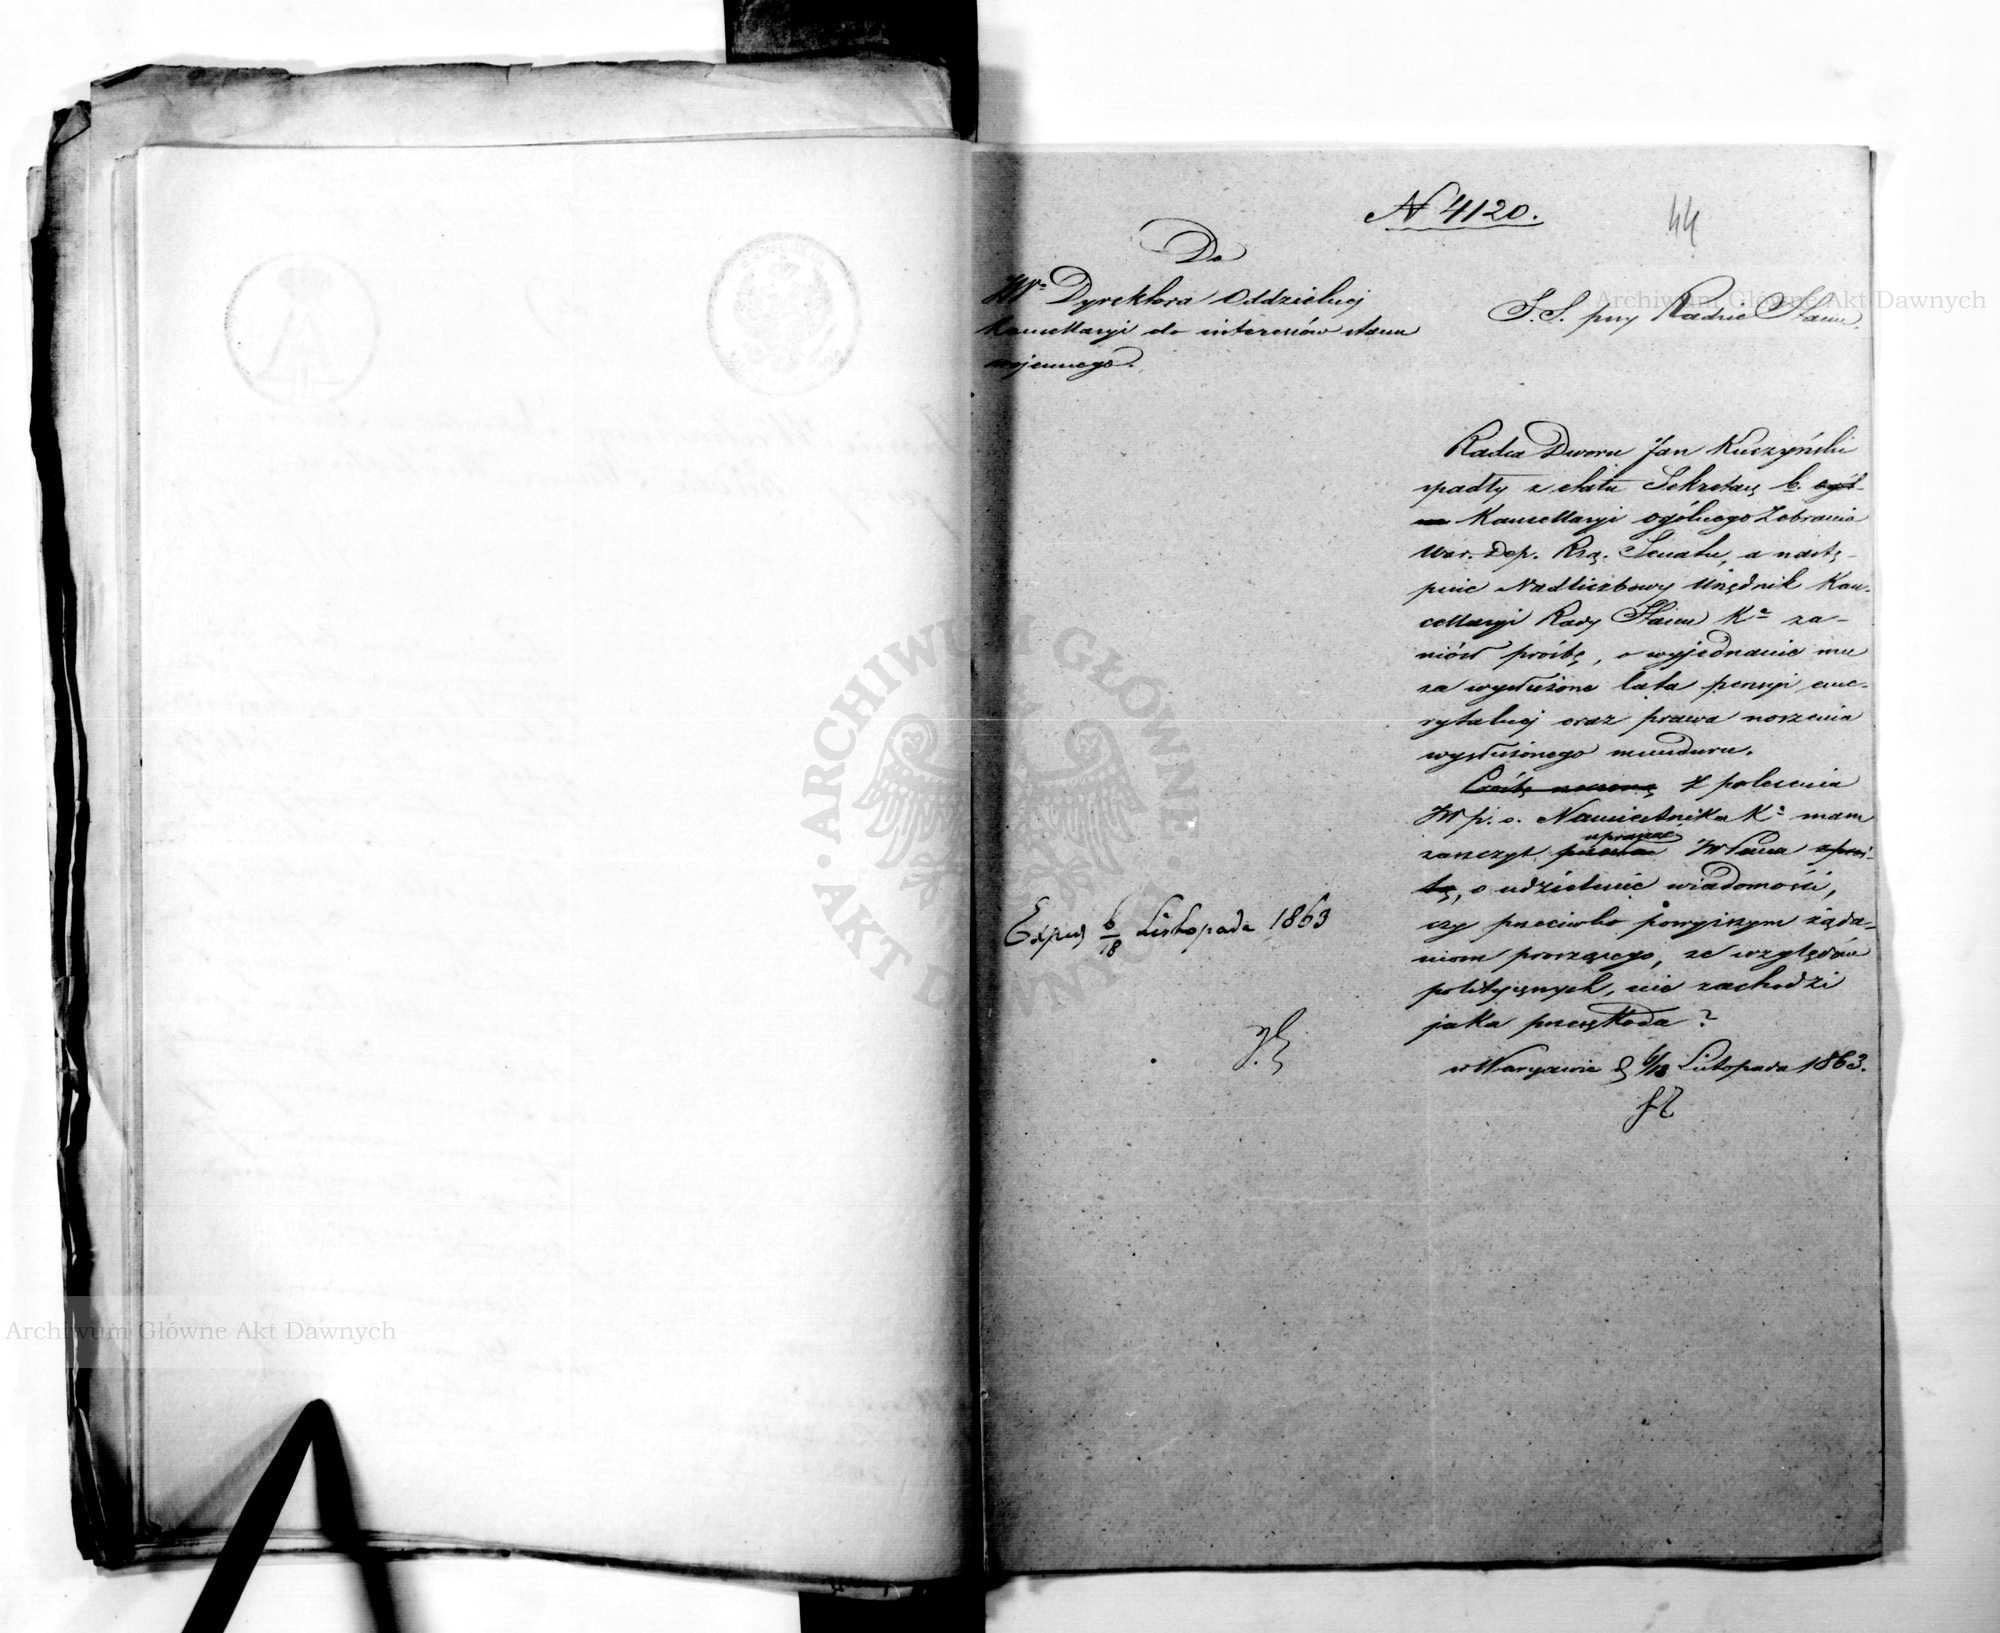 N 4120.
44
Do
JW° Dyrektora Oddzielnej
Kancellaryi do interesów stanu
wojennego.
S. S. przy Radzie Stanu.
Radca Dworu Jan Kuczyński
spadły z etatu Sekretarz b. ogól-
Kancellaryi ogólnego Zebrania
War. Dep. Rzą. Senatu, a nastę-
pnie Nadliczbowy Urzędnik Kan-
cellaryi Rady Stanu K° za-
niósł prośbę, o wyjednanie mu
za wysłużone lata pensyi eme-
rytalnej oraz prawa noszenia
wysłużonego munduru.
Z polecenia
JW p. o. Namiestnika K° mam
upraszać
zaszczyt JW Pana
o udzielenie wiadomości,
czy przeciwko powyższym żąda-
niom proszącego, ze względów
politycznych, nie zachodzi
jaka przeszkoda?
w Warszawie d 6/18 Listopada 1863.
Exped 6/18 Listopada 1863
Archiwum Główne Akt Dawnych
Archiwum Główne Akt Dawnych
ARCHIWUM GŁÓWNE AKT DAWNYCH